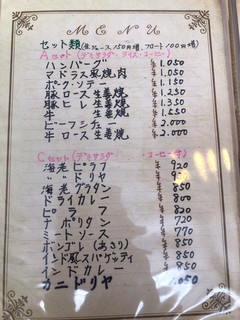 MENU
セット類(生ジュース150円増、フロート100円増)
Aセット(プチサラダ・ライス・コーヒー)
ハンバーグ ¥1.050
マドラス炭焼肉 1.050
ポークソテー 1.150
豚ロース生姜焼 1.250
豚ヒレ生姜焼 1.350
牛 生姜焼 1.250
ビーフシチュー ¥2.000
牛ロース生姜焼 2.000
Cセット(プチサラダ コーヒー付)
海老ピラフ ¥920
〃ドリヤ 920
海老グラタン 850
ドライカレー 800
ピラフ 820
ナポリタン 720
ミートソース 770
ボンゴレ(あさり) 850
インド風スパゲッティ 850
インドカレー 850
カニドリヤ 1.050